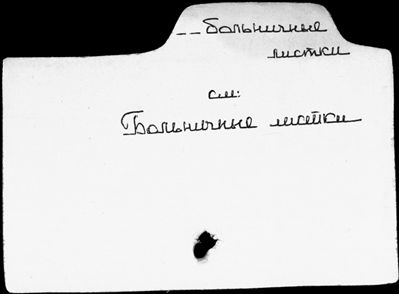 -- Больничные
листки
см:
Больничные листки